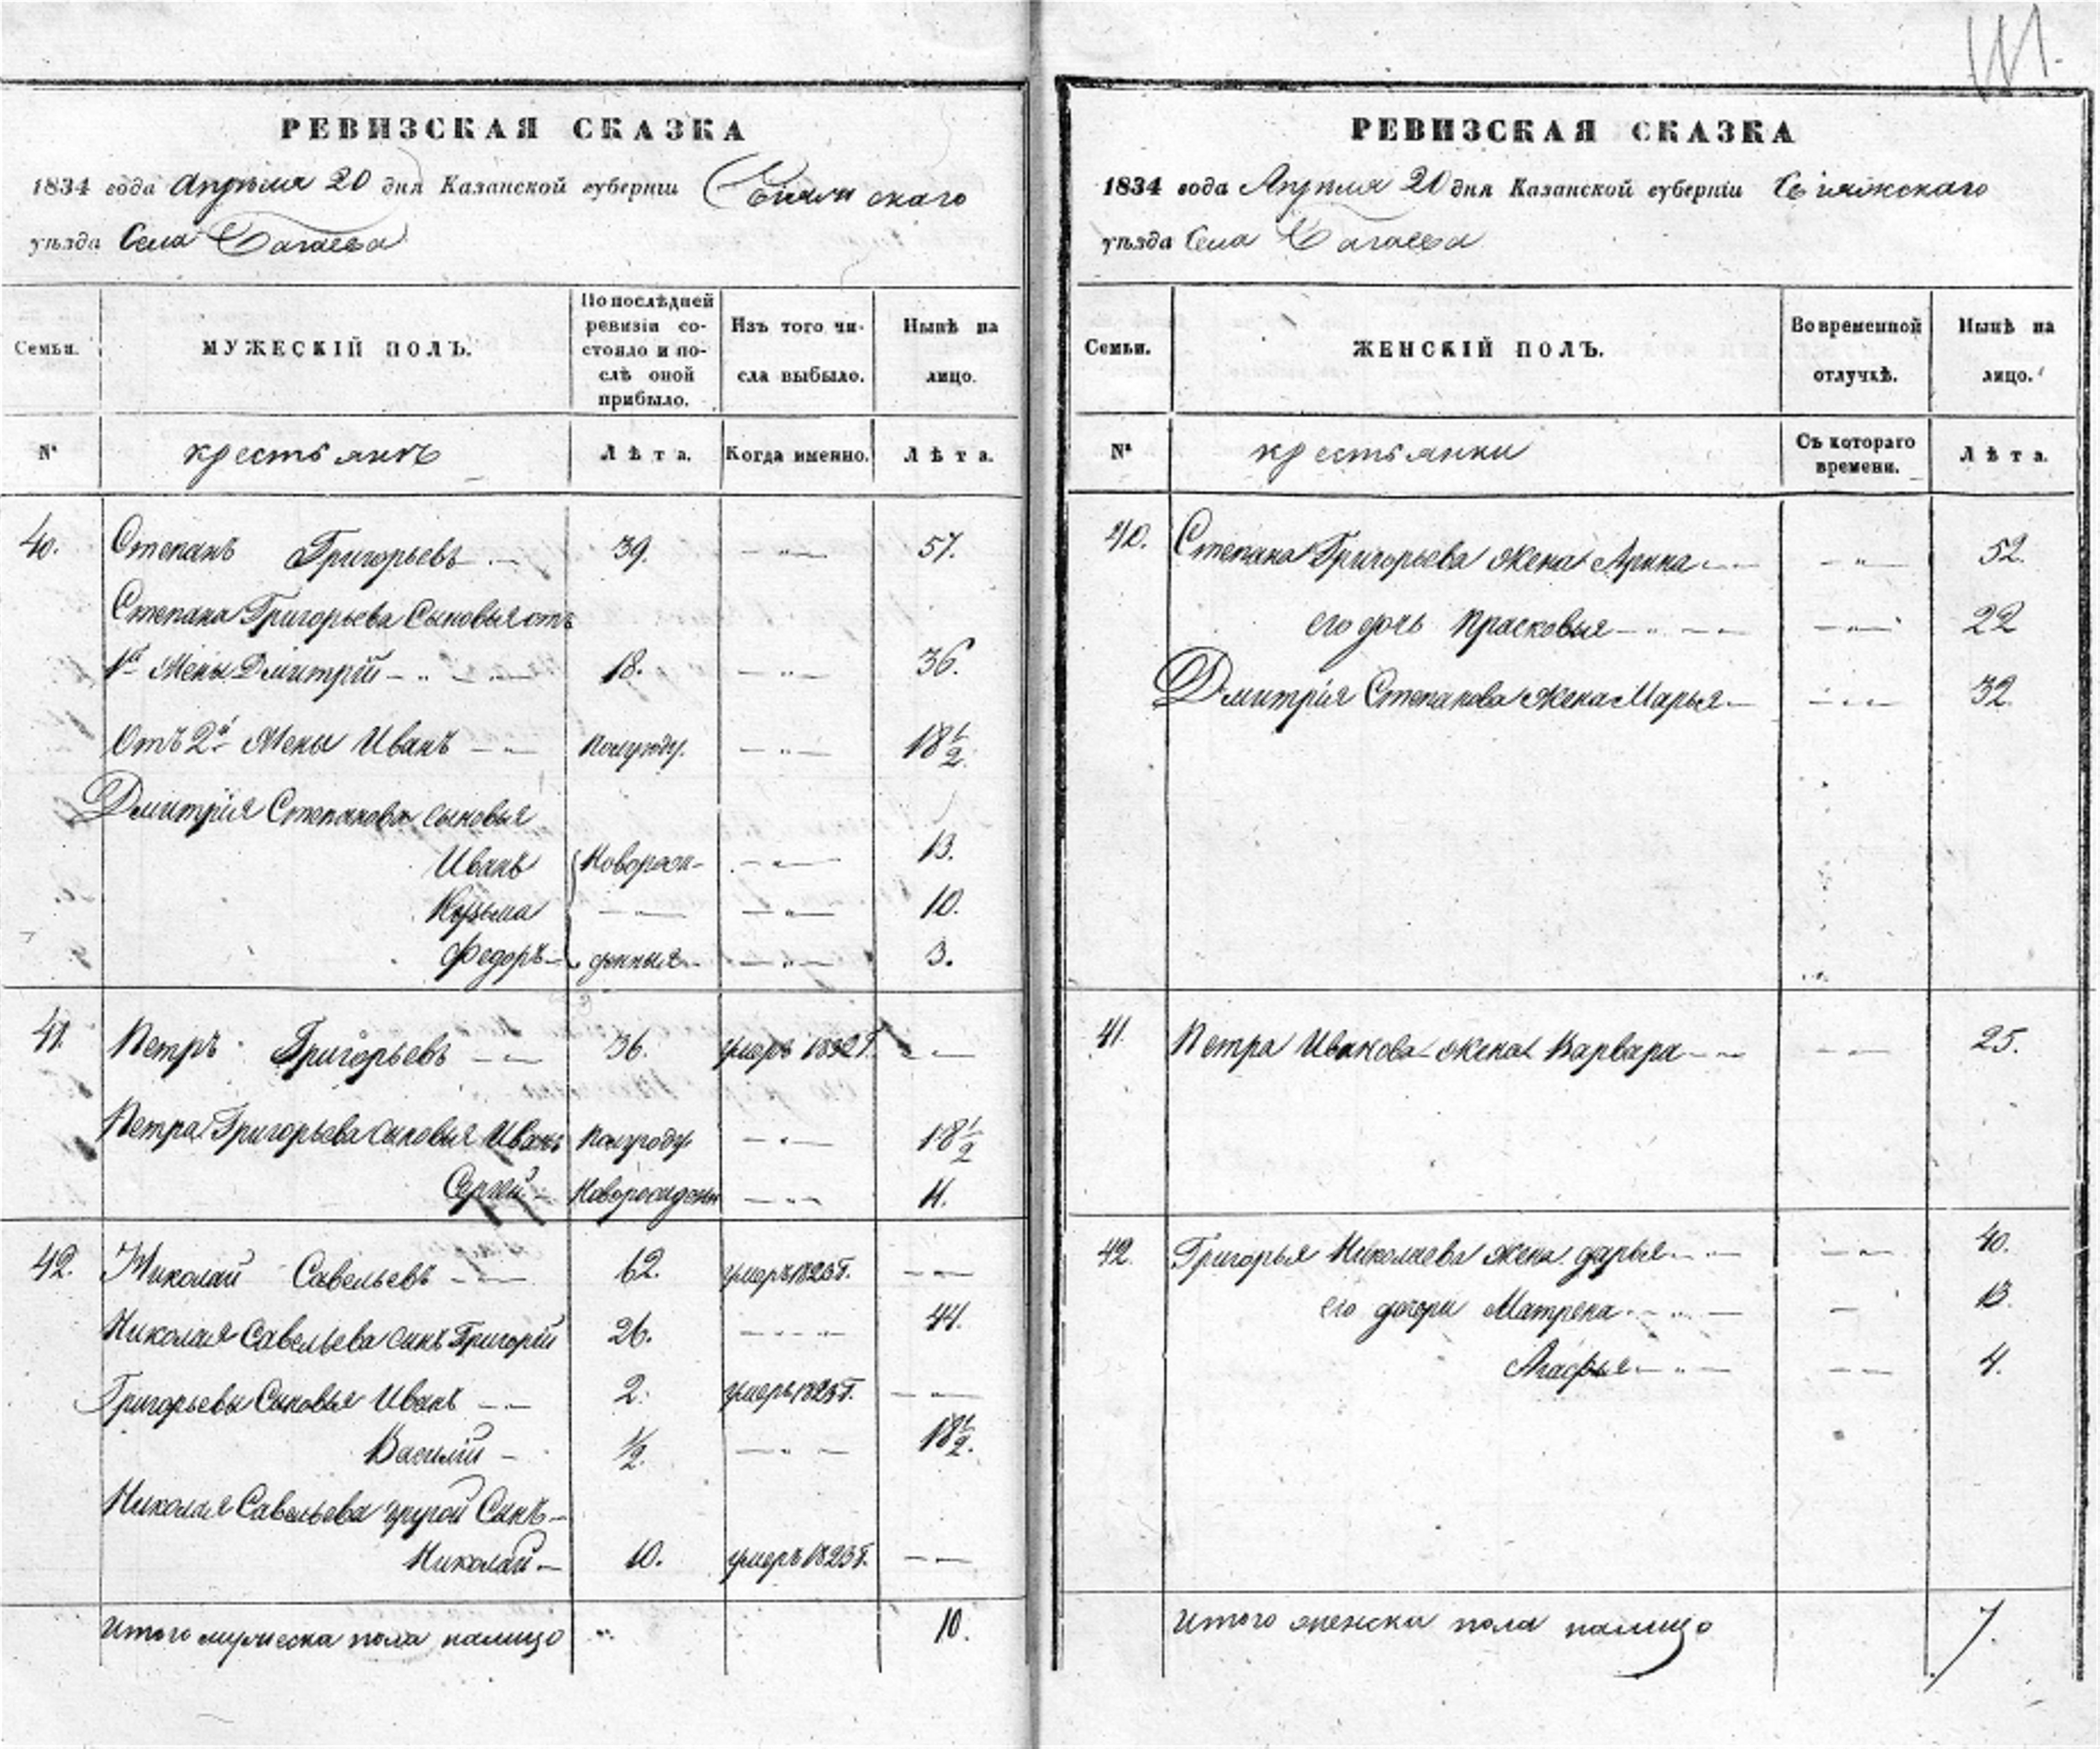 111.
РЕВИЗСКАЯ СКАЗКА
1834 года Апреля 20 дня Казанской губерніи Свіяжскаго
уѣзда Села
Семьи.
МУЖЕСКІЙ ПОЛЪ.
По послѣдней ревизіи со-
стояло и по-
слѣ оной
прибыло.
Изъ того чи-
сла выбыло.
Нынѣ на
лицо.
№
крестьянъ
Лѣта.
Когда именно.
Лѣта.
40. Степанъ Григорьевъ 39. — „ — 57.
Степана Григорьева Сыновья отъ
1й Жены Дмитрій 18. — „ — 36.
Отъ 2й Жены Иванъ полугоду. — „ — 18 1/2.
Дмитрія Степанова сыновья
Иванъ Новорож- — „ — 13.
Кузьма — — „ — 10.
Федоръ денныя — „ — 3.
41. Петръ Григорьевъ 36. умеръ 1832 г. — —
Петра Григорьева сыновья Иванъ полугоду — „ — 18 1/2
Сергей Новорожденъ — „ — 11.
42. Николай Савельевъ 62. умеръ 1823 г. — —
Николая Савельева сынъ Григорій 26. — „ — 44.
Григорьевы Сыновья Иванъ 2. умеръ 1823 г. — —
Василій 1/2. — „ — 18 1/2.
Николая Савельева другой Сынъ
Николай 10. умеръ 1823 г. — —
Итого мужеска пола налицо 10.
РЕВИЗСКАЯ СКАЗКА
1834 года Апреля 20 дня Казанской губерніи Свіяжскаго
уѣзда Села
Семьи.
ЖЕНСКІЙ ПОЛЪ.
Во временной
отлучкѣ.
Нынѣ на
лицо.
№
крестьянки
Съ котораго
времени.
Лѣта.
40. Степана Григорьева жена Арина — „ — 52.
его дочь Прасковья — „ — 22
Дмитрія Степанова жена Марья — „ — 32.
41. Петра Иванова жена Варвара — — 25.
42. Григорья Николаева жена дарья — „ — 40.
его дочери Матрена — 13.
Агафья — — 4.
Итого женска пола налицо 7.